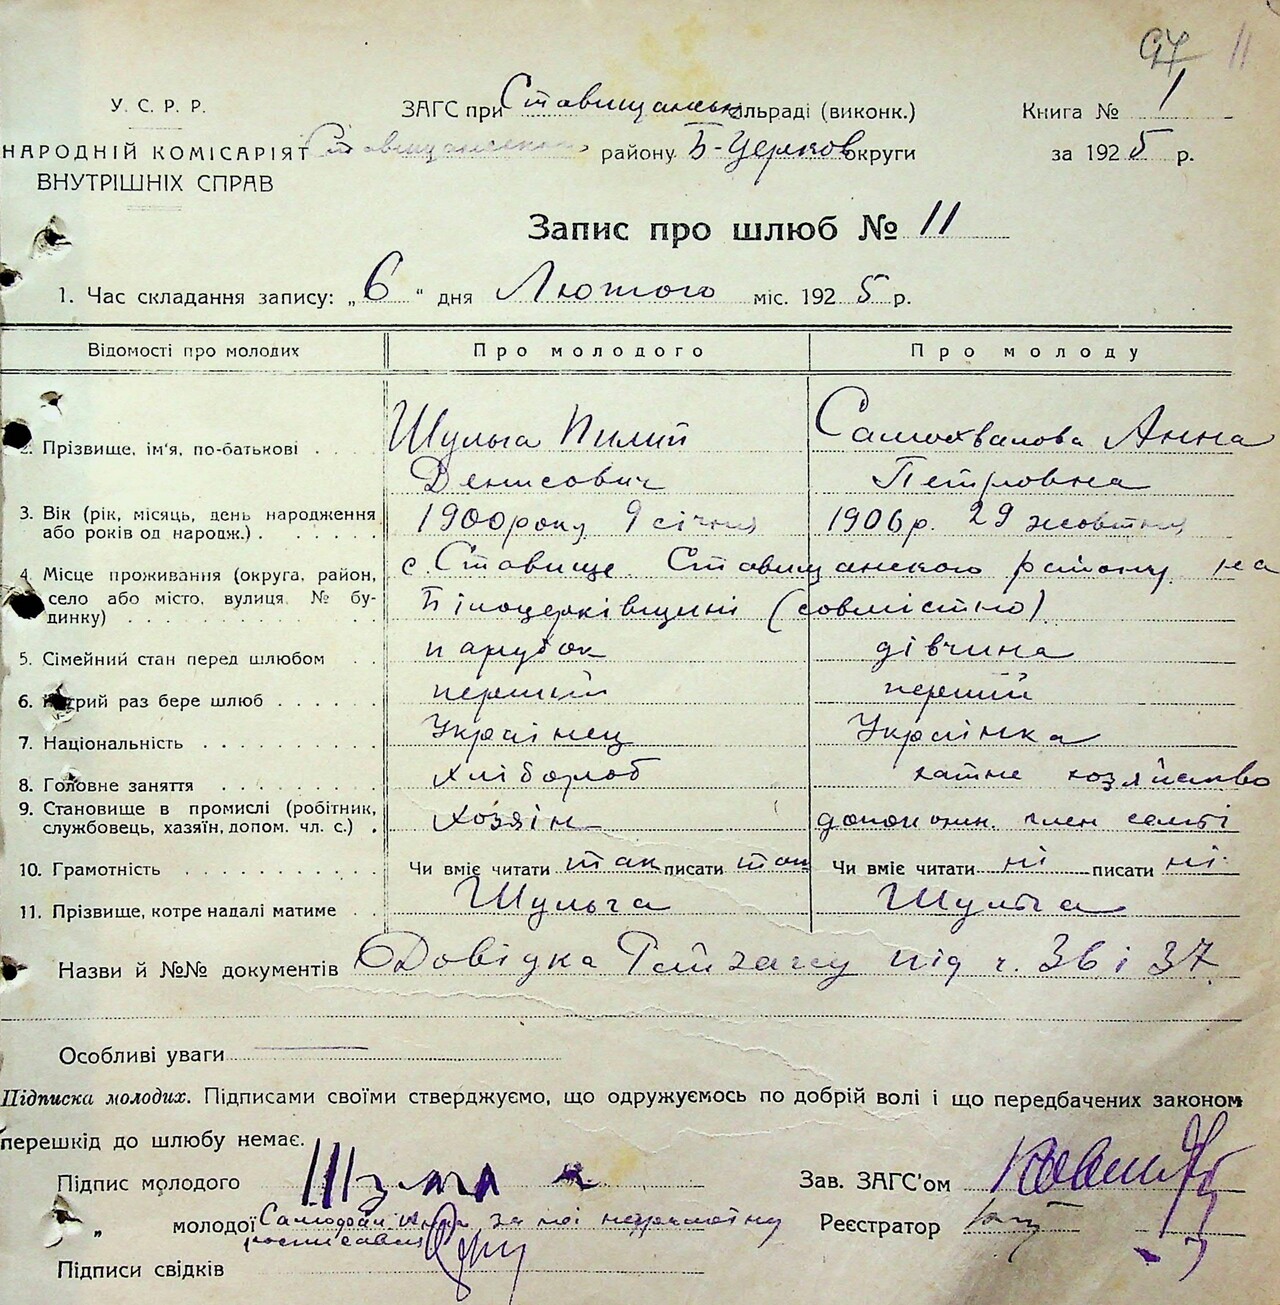 97 11
У. С. Р. Р.
НАРОДНІЙ КОМІСАРІЯТ
ВНУТРІШНІХ СПРАВ
ЗАГС при Ставищанськ ільраді (виконк.)
Ставищанском району Б-Церков округи
Книга № 1
за 1925 р.
Запис про шлюб № 11
1. Час складання запису: „6“ дня Лютого міс. 1925 р.
Відомості про молодих Про молодого Про молоду
2. Прізвище, ім'я, по-батькові . . . . Шульга Пилип Самохвалова Анна
Денисович Петровна
3. Вік (рік, місяць, день народження 1900 року 9 січня 1906 р. 29 жовтня
або років од народж.) . . . . . .
4. Місце проживання (округа, район, с. Ставище Ставищанского району на
село або місто, вулиця, № бу- Білоцерківщині (совмістно)
динку) . . . . . . . . . . . .
5. Сімейний стан перед шлюбом . . парубок дівчина
6. Котрий раз бере шлюб . . . . . . перший перший
7. Національність . . . . . . . . . Українец Українка
8. Головне заняття . . . . . . . . хлібороб хатне хозяйство
9. Становище в промислі (робітник, хозяін допоможн. член семьі
службовець, хазяїн, допом. чл. с.) .
10. Грамотність . . . . . . . . . . . Чи вміє читати так писати так Чи вміє читати ні писати ні
11. Прізвище, котре надалі матиме . . Шульга Шульга
Назви й №№ документів Довідка Райзагсу під ч. 36 і 37
Особливі уваги
Підписка молодих. Підписами своїми стверджуємо, що одружуємось по добрій волі і що передбачених законом
перешкід до шлюбу немає.
Підпис молодого Шульга Зав. ЗАГС'ом
„ молодої за неї неграмотну Реєстратор
росписався
Підписи свідків